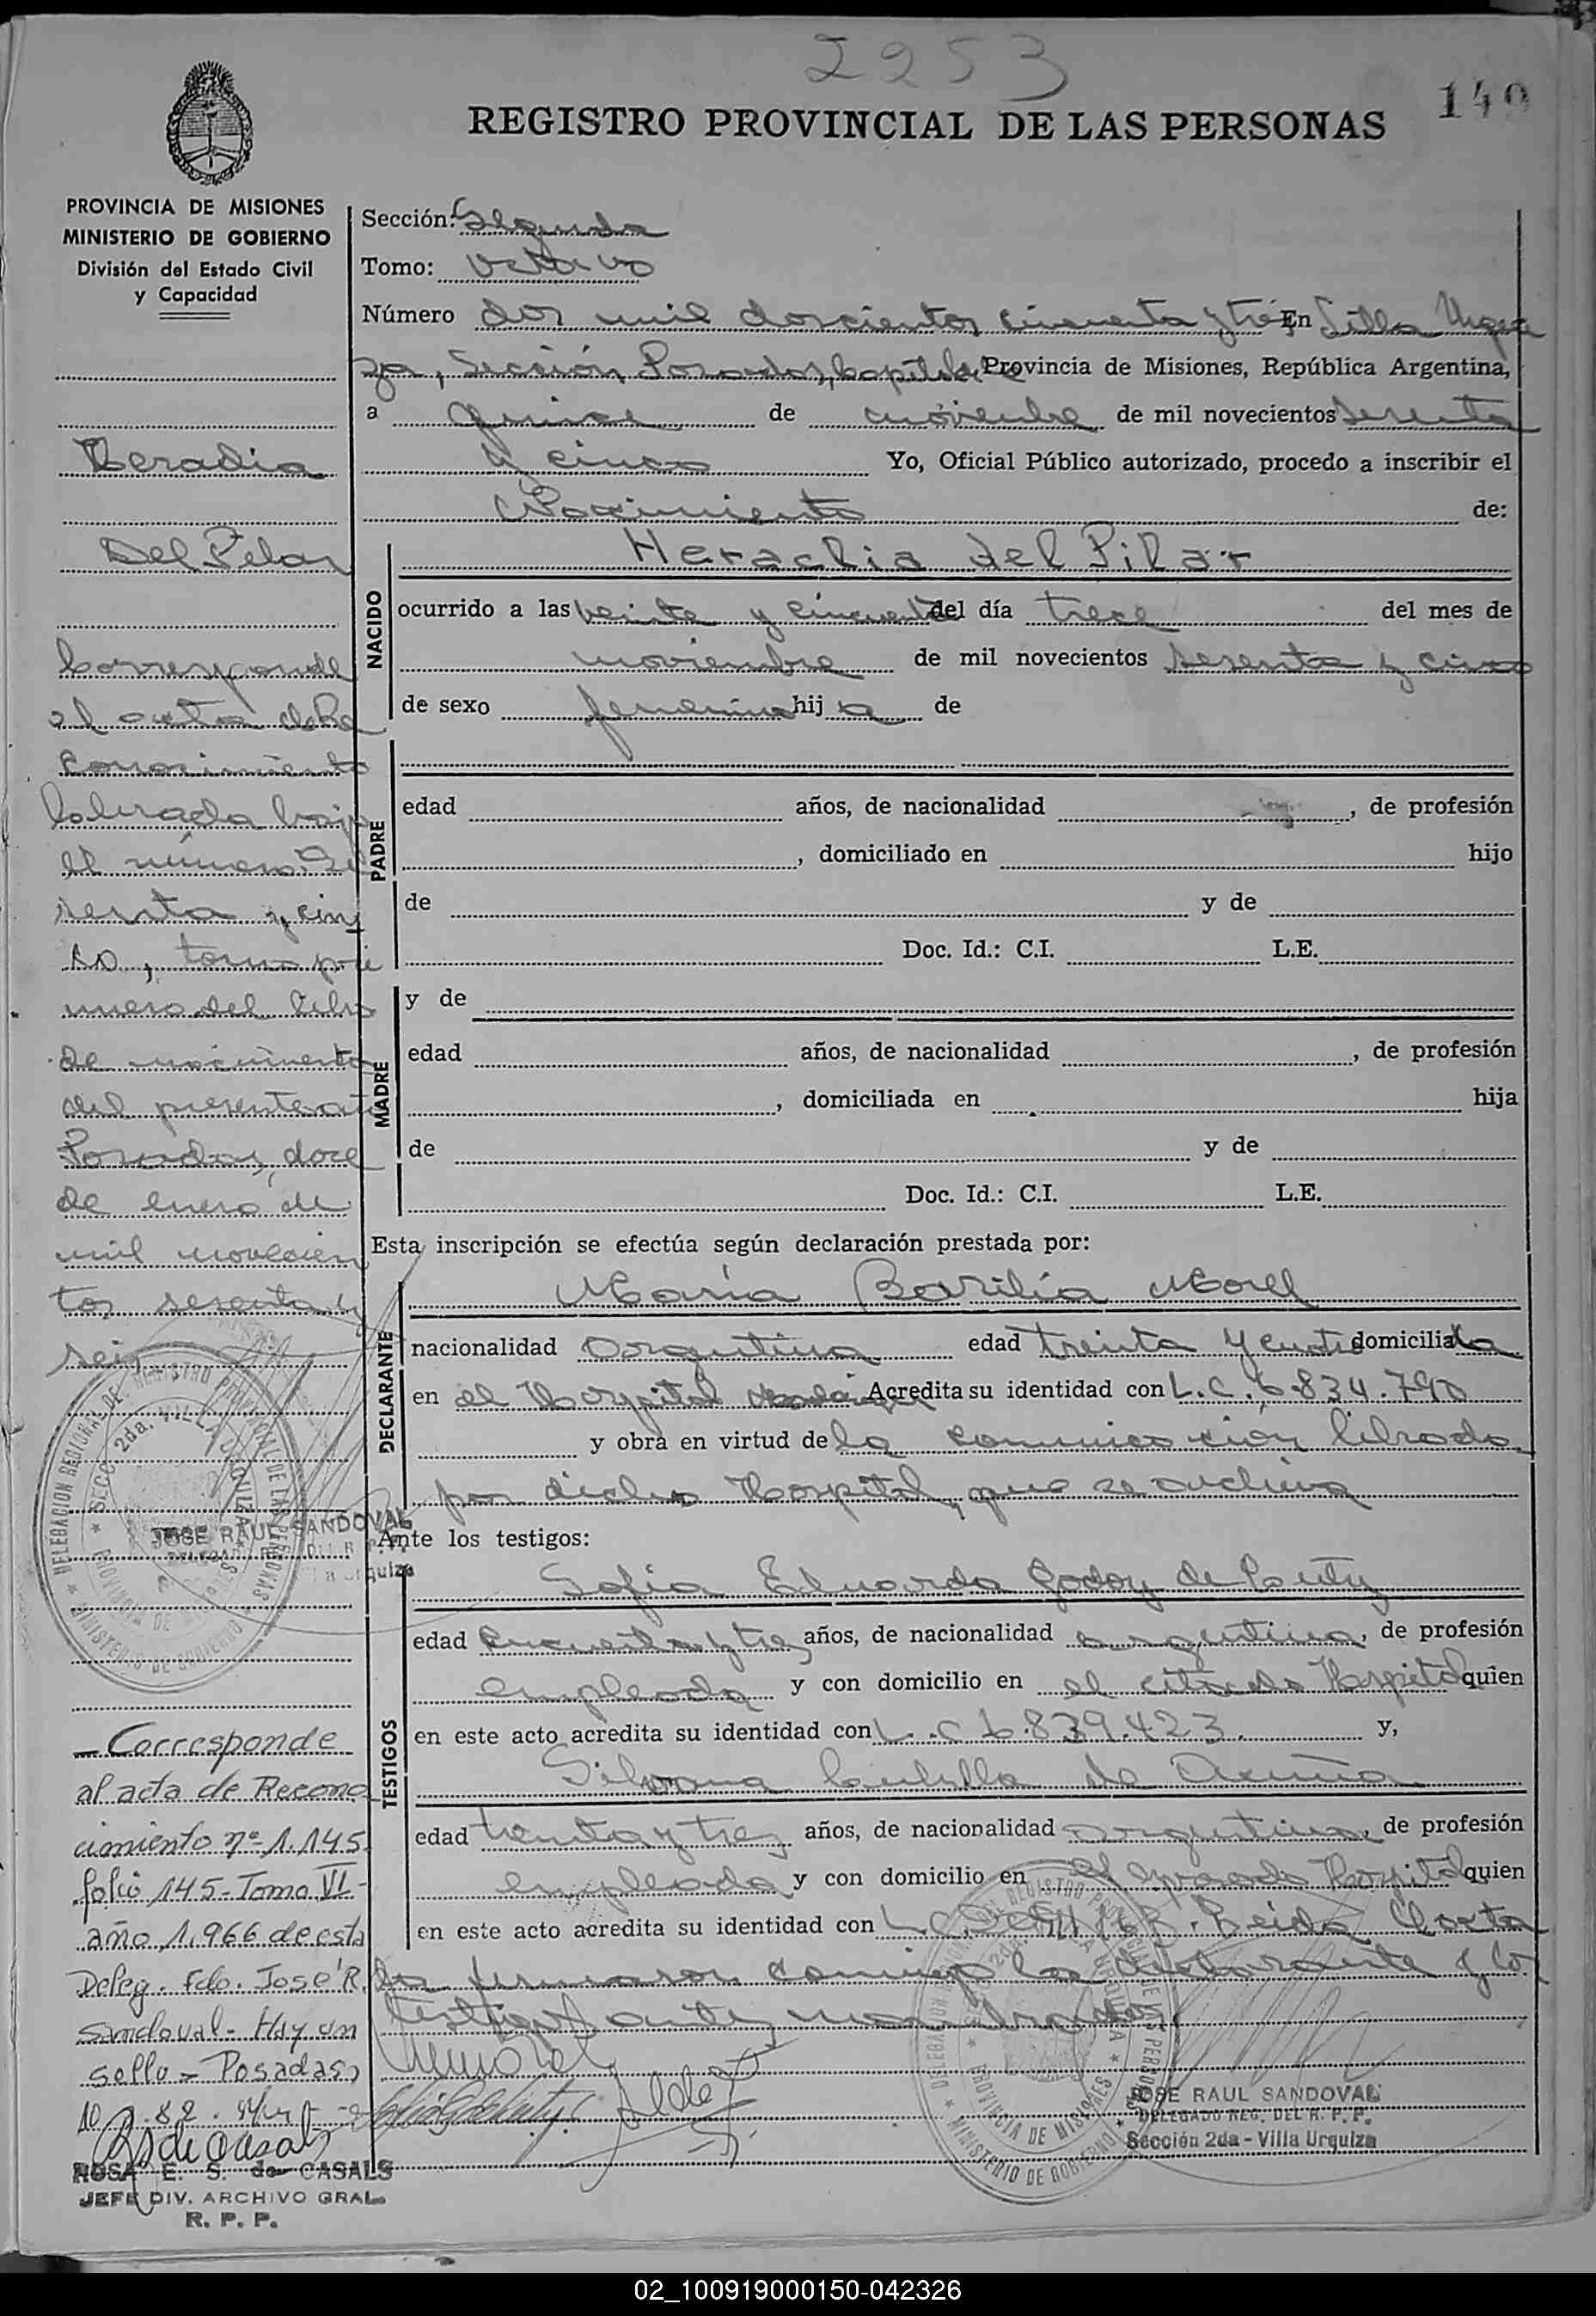 2253
149
REGISTRO PROVINCIAL DE LAS PERSONAS
PROVINCIA DE MISIONES
MINISTERIO DE GOBIERNO
División del Estado Civil
y Capacidad
Heraclia
Del Pilar
Corresponde
al acta de Re
conocimiento
labrada bajo
el número se
senta y cin
co, tomo pri
mero del libro
de nacimiento
del presente año
Posadas, doce
de enero de
mil novecien
tos sesenta y
seis
JOSE RAUL SANDOVAL
— Corresponde
al acta de Recono
cimiento nº 1.145
folio 145 - Tomo VI -
año 1.966 de esta
Deleg. Fdo. José R.
Sandoval - Hay un
sello - Posadas,
ROSA E. S. de CASALS
JEFE DIV. ARCHIVO GRAL.
R. P. P.
Sección: Segunda
Tomo: octavo
Número dos mil doscientos cincuenta y tres En Villa Urqui
za, Sección Posadas, Capital de Provincia de Misiones, República Argentina,
a quince de noviembre de mil novecientos sesenta
y cinco Yo, Oficial Público autorizado, procedo a inscribir el
Nacimiento de:
NACIDO
Heraclia del Pilar
ocurrido a las veinte y cincuenta del día trece del mes de
noviembre de mil novecientos sesenta y cinco
de sexo femenino hij a de
PADRE
edad años, de nacionalidad , de profesión
, domiciliado en hijo
de y de
Doc. Id.: C.I. L.E.
MADRE
y de
edad años, de nacionalidad , de profesión
, domiciliada en hija
de y de
Doc. Id.: C.I. L.E.
Esta inscripción se efectúa según declaración prestada por:
DECLARANTE
María Basilia Morel
nacionalidad Argentina edad treinta y cuatro domiciliada
en el Hospital Madariaga Acredita su identidad con L.C. 6.834.790
y obra en virtud de la comunicación librada
por dicho Hospital, que se archiva
Ante los testigos:
TESTIGOS
Sofia Eduarda Godoy de
edad cincuenta y tres años, de nacionalidad argentina, de profesión
empleada y con domicilio en el citado Hospital quien
en este acto acredita su identidad con L.C 6.839.423. y,
Silvana de Acuña
edad treinta y tres años, de nacionalidad argentina, de profesión
empleada y con domicilio en el expresado Hospital quien
en este acto acredita su identidad con L.C. Leida el acta
la firmaron conmigo la declarante y los
testigos antes nombrados
JOSE RAUL SANDOVAL
DELEGADO REG. DEL R. P. P.
Sección 2da - Villa Urquiza
02_100919000150-042326